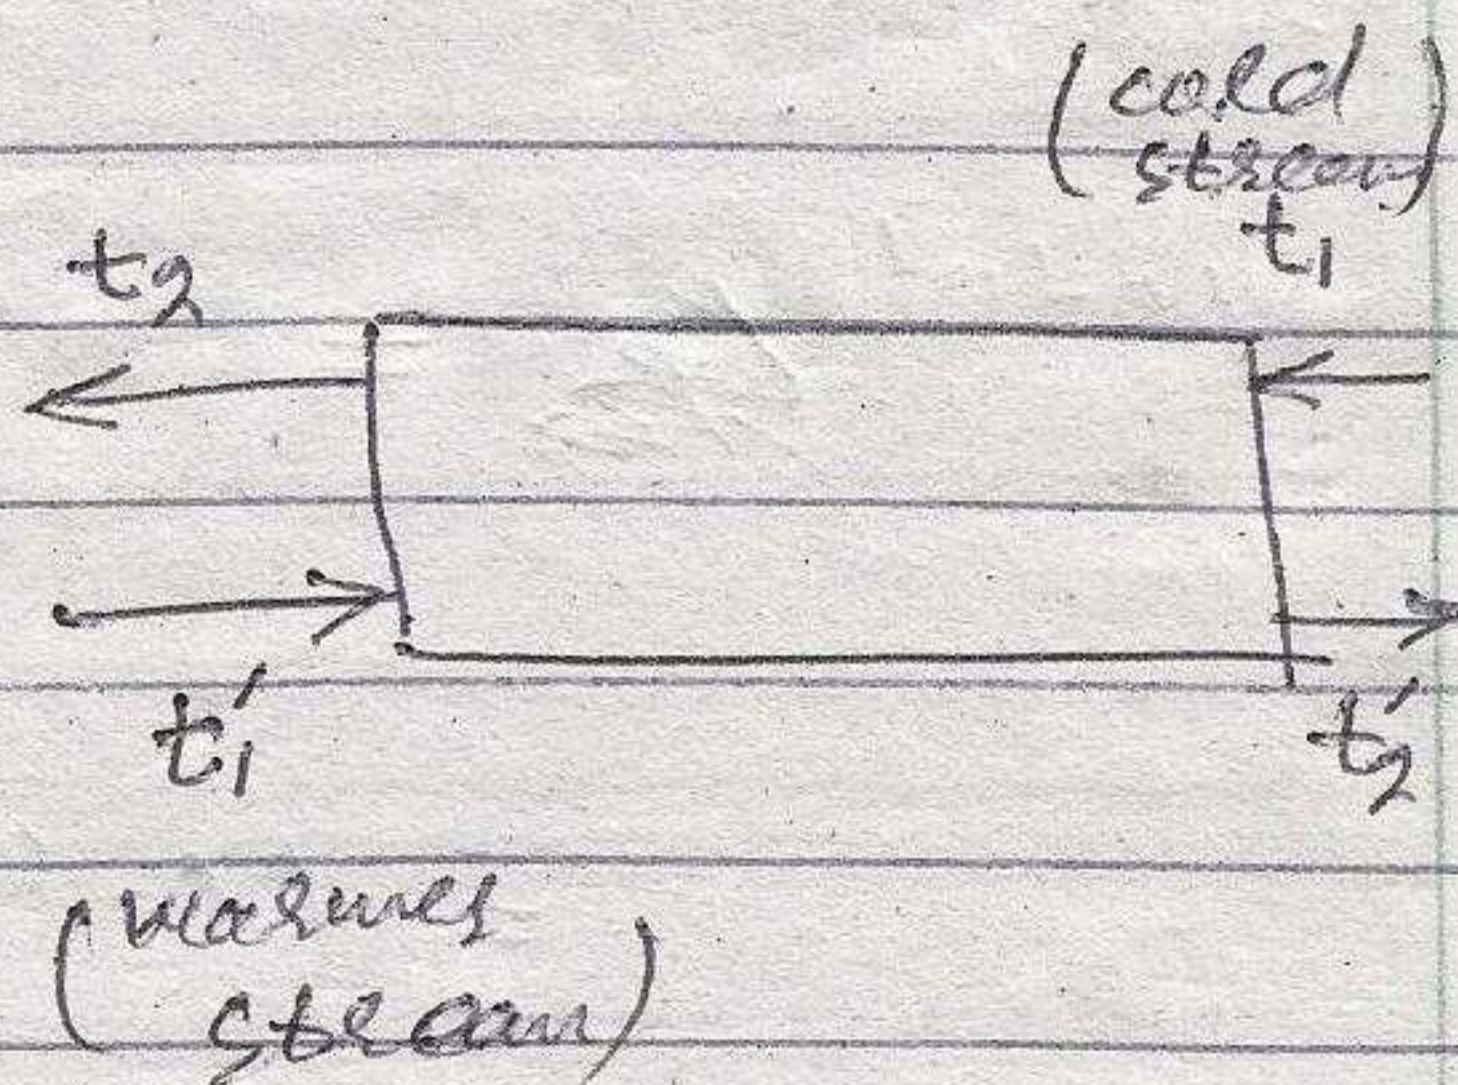 (cold
stream)
t1
t2
t1'
t2'
(warmer
stream)